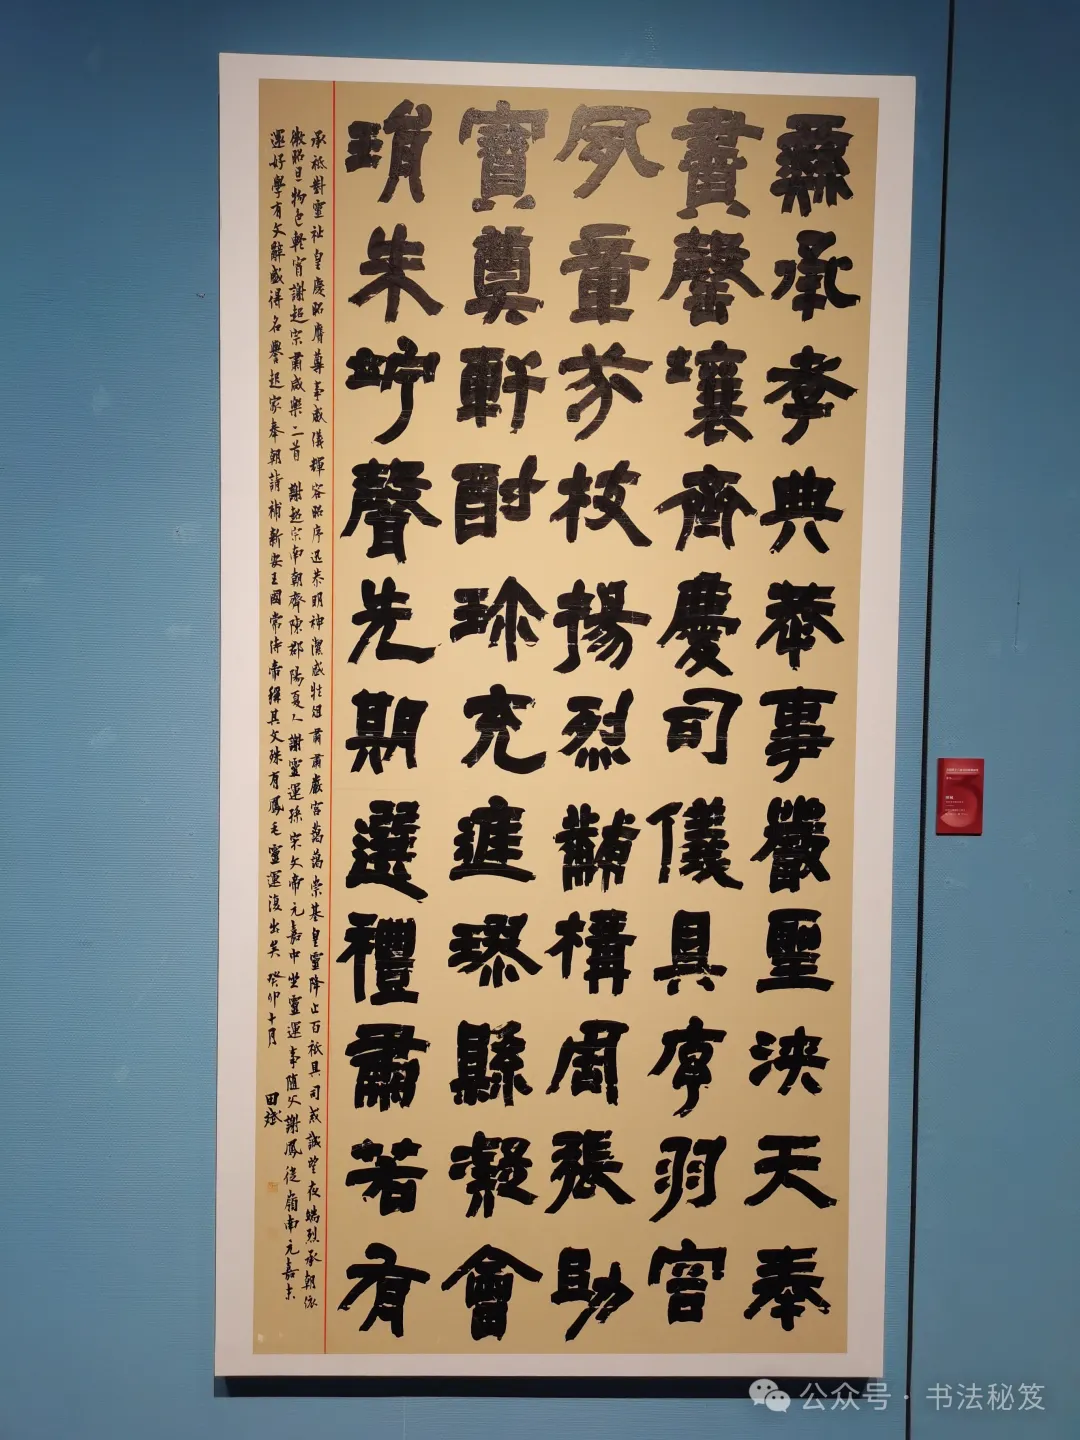 粛承孝典恭事嚴聖浹天奉
賮罄壤齊慶司儀具序羽容
夙章芬枝揚烈黼構周張助
寶奠軒酎珍充庭璆縣凝會
琄朱竚聲先期選禮肅若有
承祗對靈祉皇慶昭膺尊事威儀輝容昭序迅恭明神潔盛牲俎肅肅嚴宮藹藹崇基皇靈降止百祇具司戒誠望夜端烈承朝依
微昭旦物色輕宵謝超宗肅咸樂二首 謝超宗南朝齊陳郡陽夏人謝靈運孫宋文帝元嘉中坐靈運事隨父謝鳳徙嶺南元嘉末
還好學有文辭盛得名譽起家奉朝請補新安王國常侍帝稱其文殊有鳳毛靈運復出矣 癸卯十月 田斌
公众号·书法秘笈